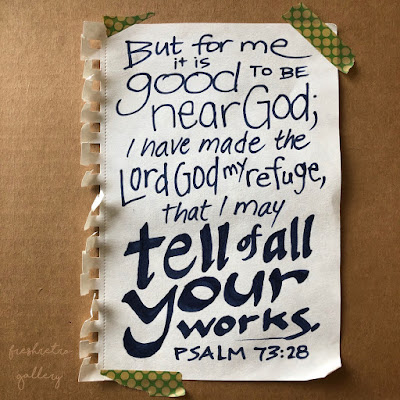 But for me
it is
good TO BE
near God;
I have made the
Lord God my refuge,
that I may
tell of all
your
works.
PSALM 73:28
freshretro
gallery